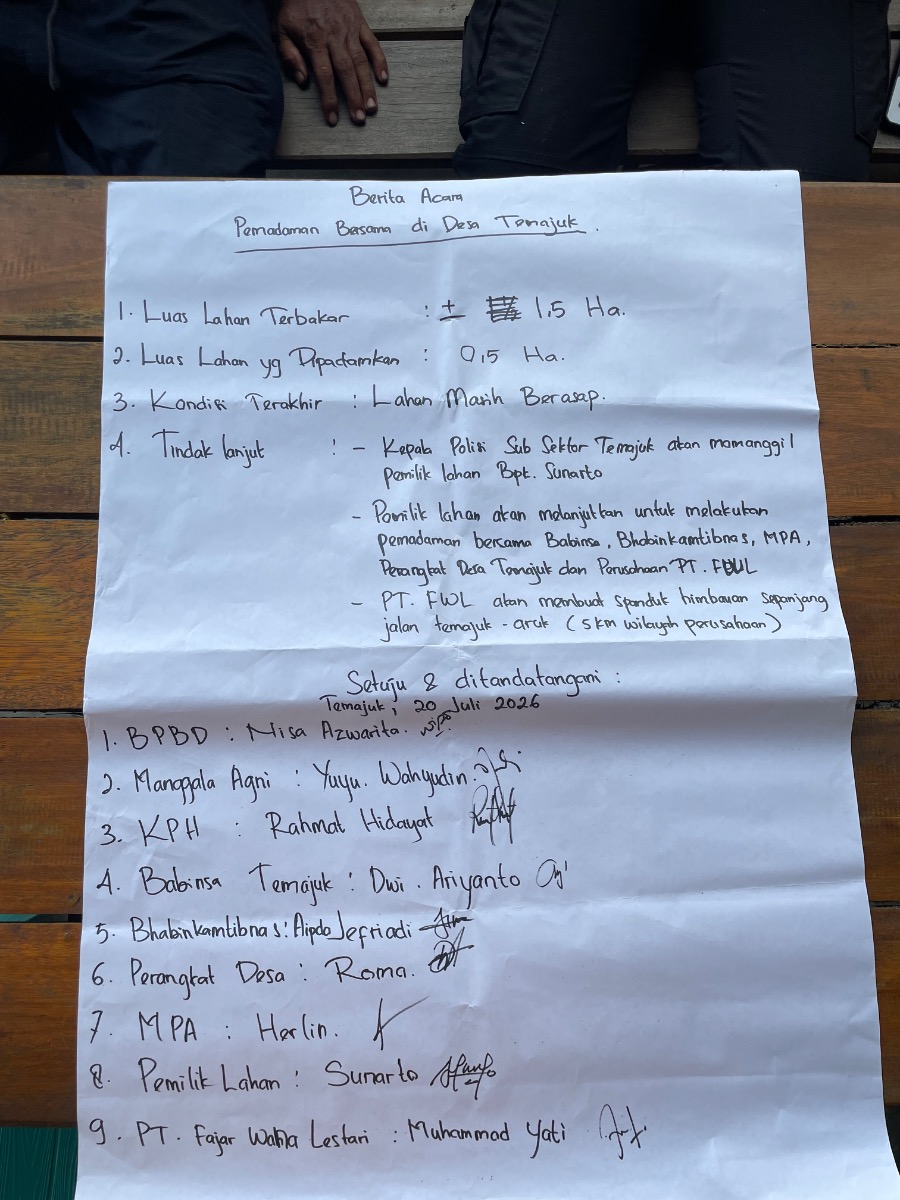 Berita Acara
Pemadaman Bersama di Desa Temajuk.
1. Luas Lahan Terbakar : ± 1,5 Ha.
2. Luas Lahan yg Dipadamkan : 0,5 Ha.
3. Kondisi Terakhir : Lahan Masih Berasap.
4. Tindak lanjut : - Kepala Polisi Sub Sektor Temajuk akan memanggil
pemilik lahan Bpk. Sunarto
- Pemilik lahan akan melanjutkan untuk melakukan
pemadaman bersama Babinsa, Bhabinkamtibnas, MPA,
Perangkat Desa Temajuk dan Perusahaan PT. FWL
- PT. FWL akan membuat spanduk himbauan sepanjang
jalan temajuk - aruk (5 km wilayah perusahaan)
Setuju & ditandatangani :
Temajuk, 20 Juli 2026
1. BPBD : Nisa Azwarita.
2. Manggala Agni : Yuyu. Wahyudin.
3. KPH : Rahmat Hidayat
4. Babinsa Temajuk : Dwi. Ariyanto
5. Bhabinkamtibnas : Aipda Jefriadi
6. Perangkat Desa : Roma.
7. MPA : Herlin.
8. Pemilik Lahan : Sunarto
9. PT. Fajar Wahna Lestari : Muhammad Yati